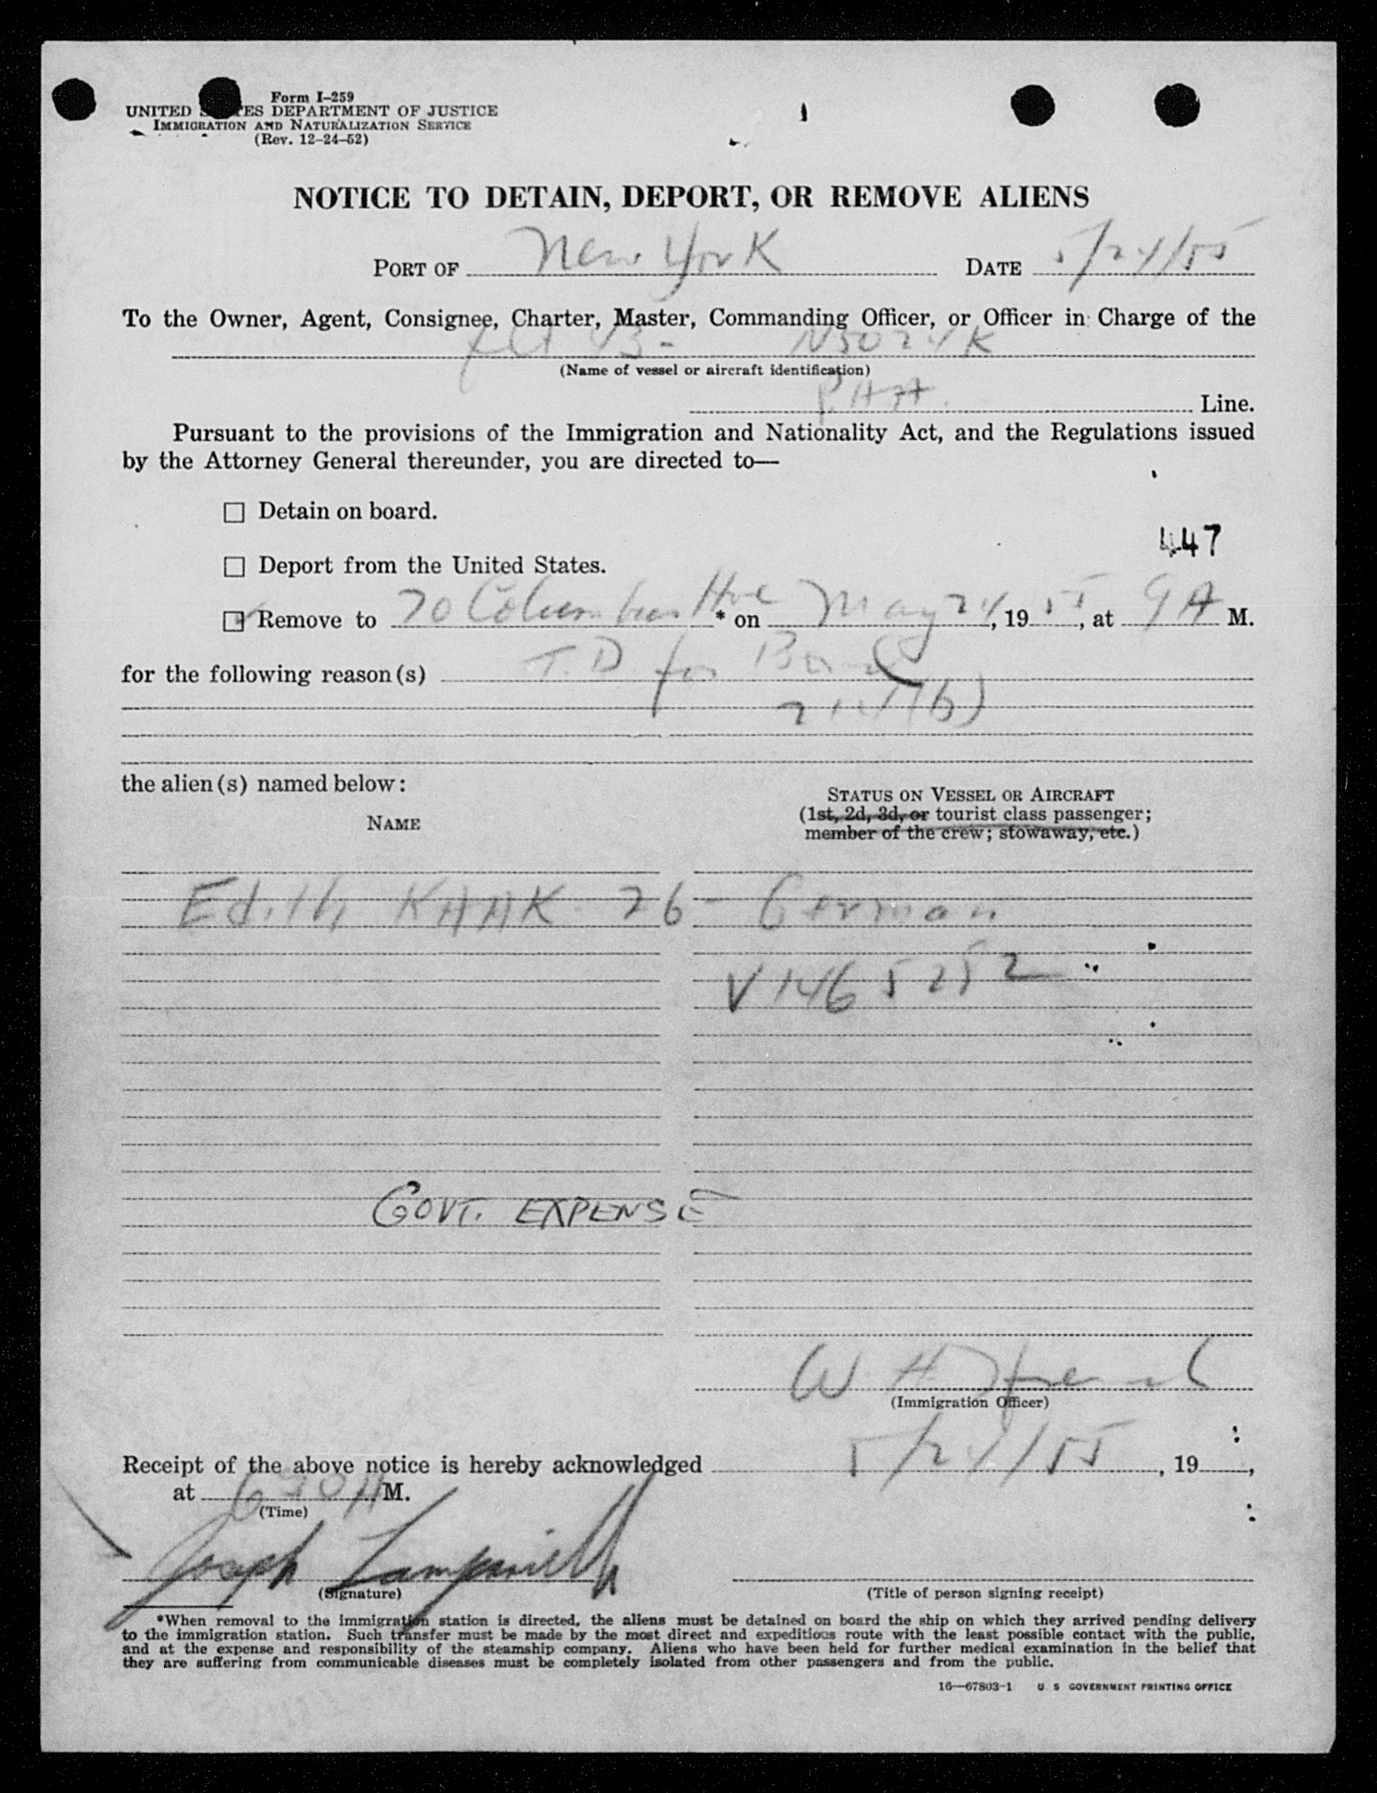 Form I-259
UNITED STATES DEPARTMENT OF JUSTICE
IMMIGRATION AND NATURALIZATION SERVICE
(Rev. 12-24-52)
NOTICE TO DETAIN, DEPORT, OR REMOVE ALIENS
PORT OF New York DATE 5/24/55
To the Owner, Agent, Consignee, Charter, Master, Commanding Officer, or Officer in Charge of the
flt 73 - N5024K
(Name of vessel or aircraft identification)
P.A.A. Line.
Pursuant to the provisions of the Immigration and Nationality Act, and the Regulations issued
by the Attorney General thereunder, you are directed to—
☐ Detain on board.
447
☐ Deport from the United States.
☑ Remove to 70 Columbus Ave * on May 24, 1955, at 9 A M.
for the following reason(s) T.D for Bond
the alien(s) named below:
NAME
STATUS ON VESSEL OR AIRCRAFT
(1st, 2d, 3d, or tourist class passenger;
member of the crew; stowaway, etc.)
Edith KAAK 26 - German
V1465252
GOVT. EXPENSE
W H
(Immigration Officer)
Receipt of the above notice is hereby acknowledged 5/24/55, 19 ,
at 630A M.
(Time)
Joseph
(Signature)
(Title of person signing receipt)
*When removal to the immigration station is directed, the aliens must be detained on board the ship on which they arrived pending delivery
to the immigration station. Such transfer must be made by the most direct and expeditious route with the least possible contact with the public,
and at the expense and responsibility of the steamship company. Aliens who have been held for further medical examination in the belief that
they are suffering from communicable diseases must be completely isolated from other passengers and from the public.
16—67803-1 U. S. GOVERNMENT PRINTING OFFICE